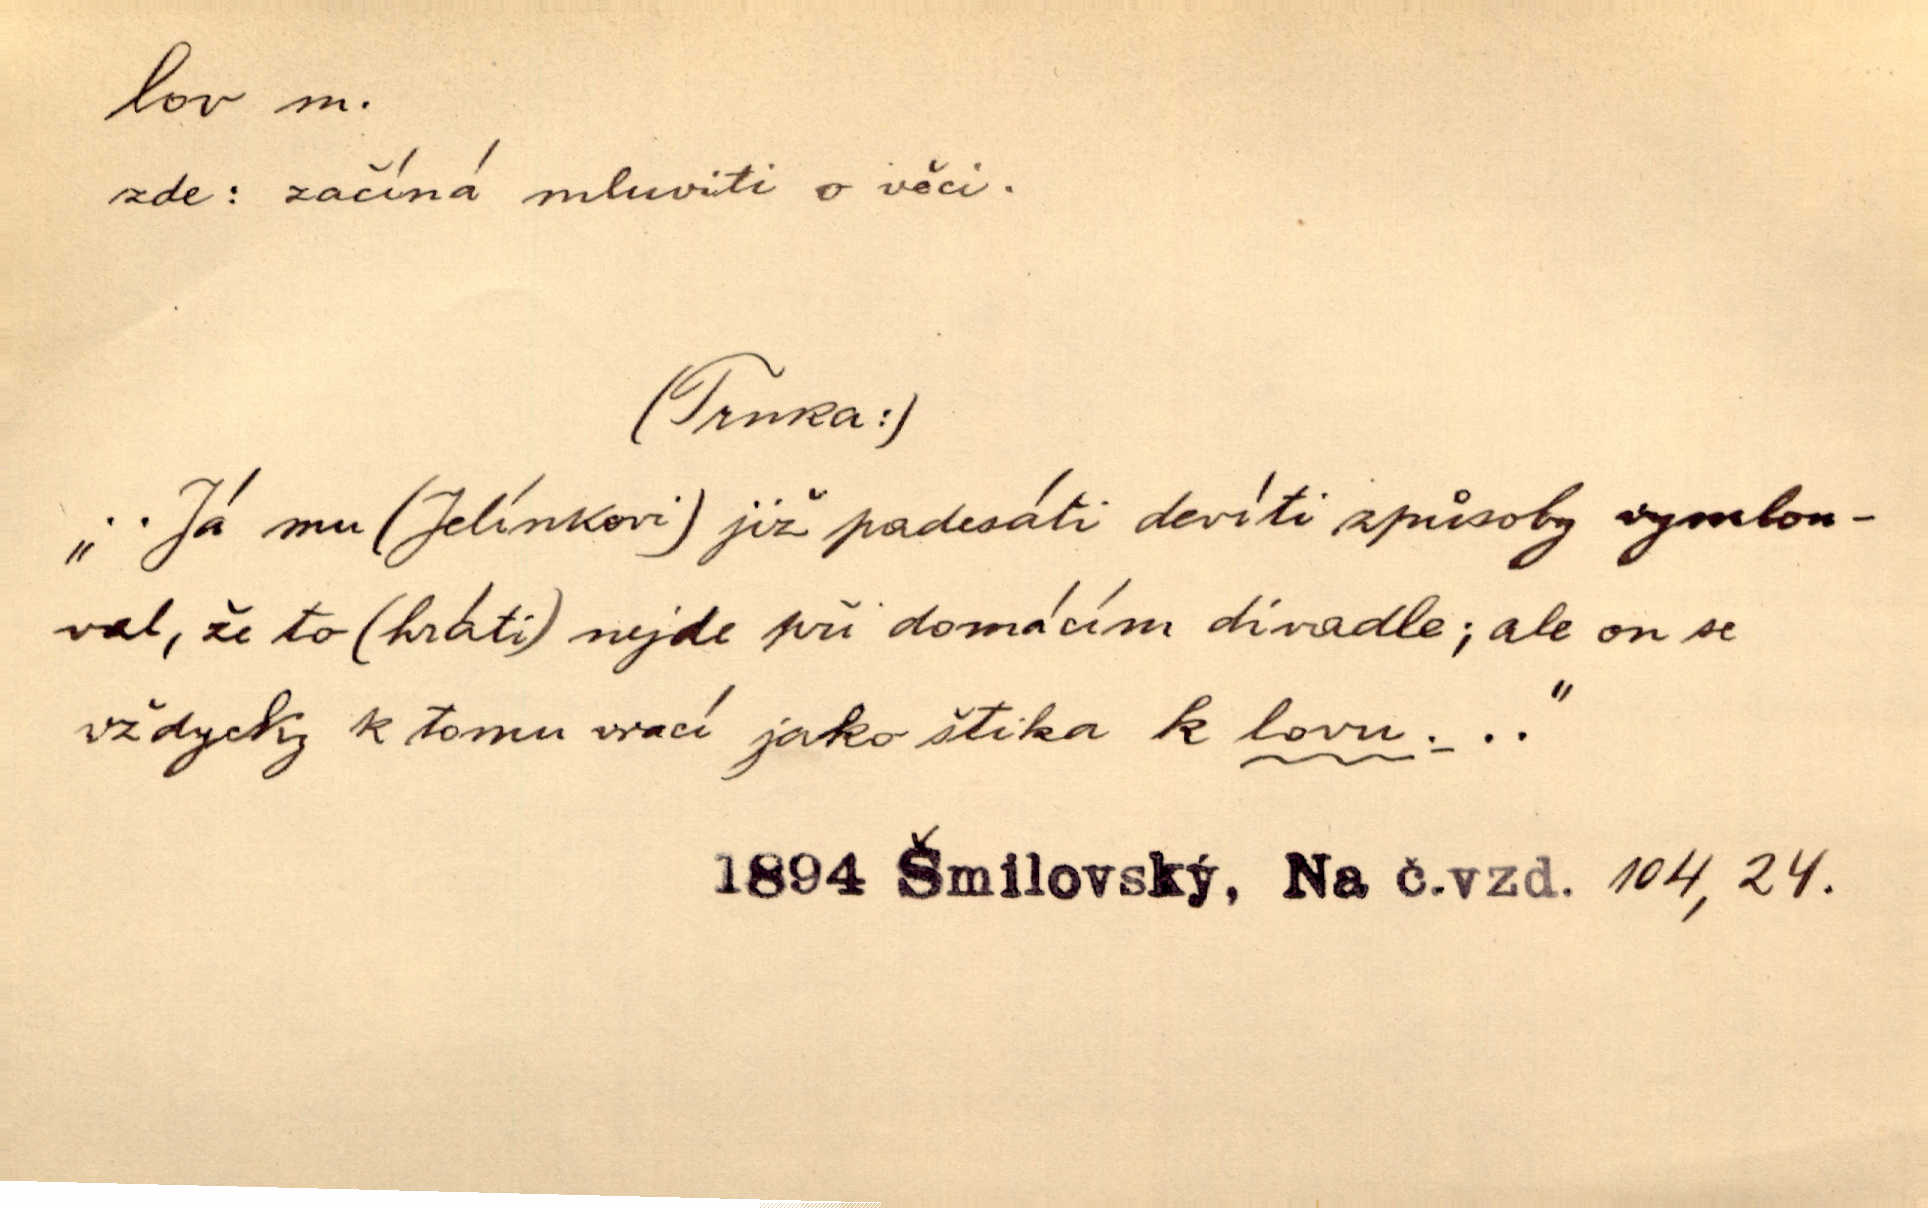 lov m.
zde: začíná mluviti o věci.
(Trnka:)
„..Já mu (Jelínkovi) již padesáti devíti způsoby vymlou-
val, že to (hráti) nejde při domácím divadle; ale on se
vždycky k tomu vrací jako štika k lovu. . ."
1894 Šmilovský, Na č.vzd. 104, 24.